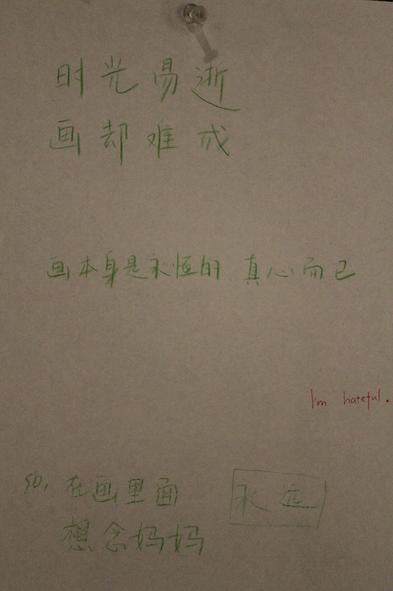 时光易逝
画却难成
画本身是永恒的 真心而已
I'm hateful.
so, 在画里面 永远
想念妈妈